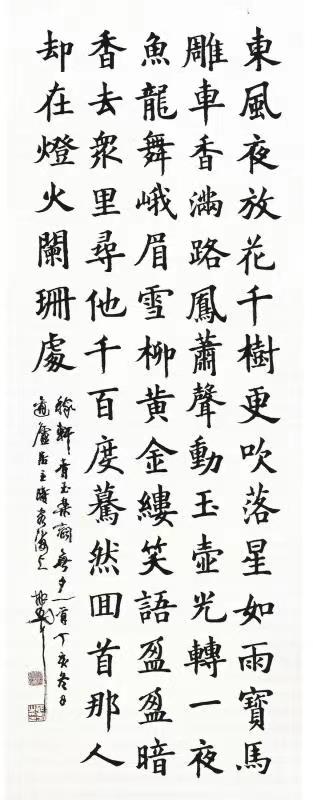 東風夜放花千樹更吹落星如雨寶馬
雕車香滿路鳳蕭聲動玉壺光轉一夜
魚龍舞峨眉雪柳黄金縷笑語盈盈暗
香去衆里尋他千百度驀然囬首那人
却在燈火闌珊處
稼軒青玉案詞夕一首丁亥冬月
廬居主時客海上